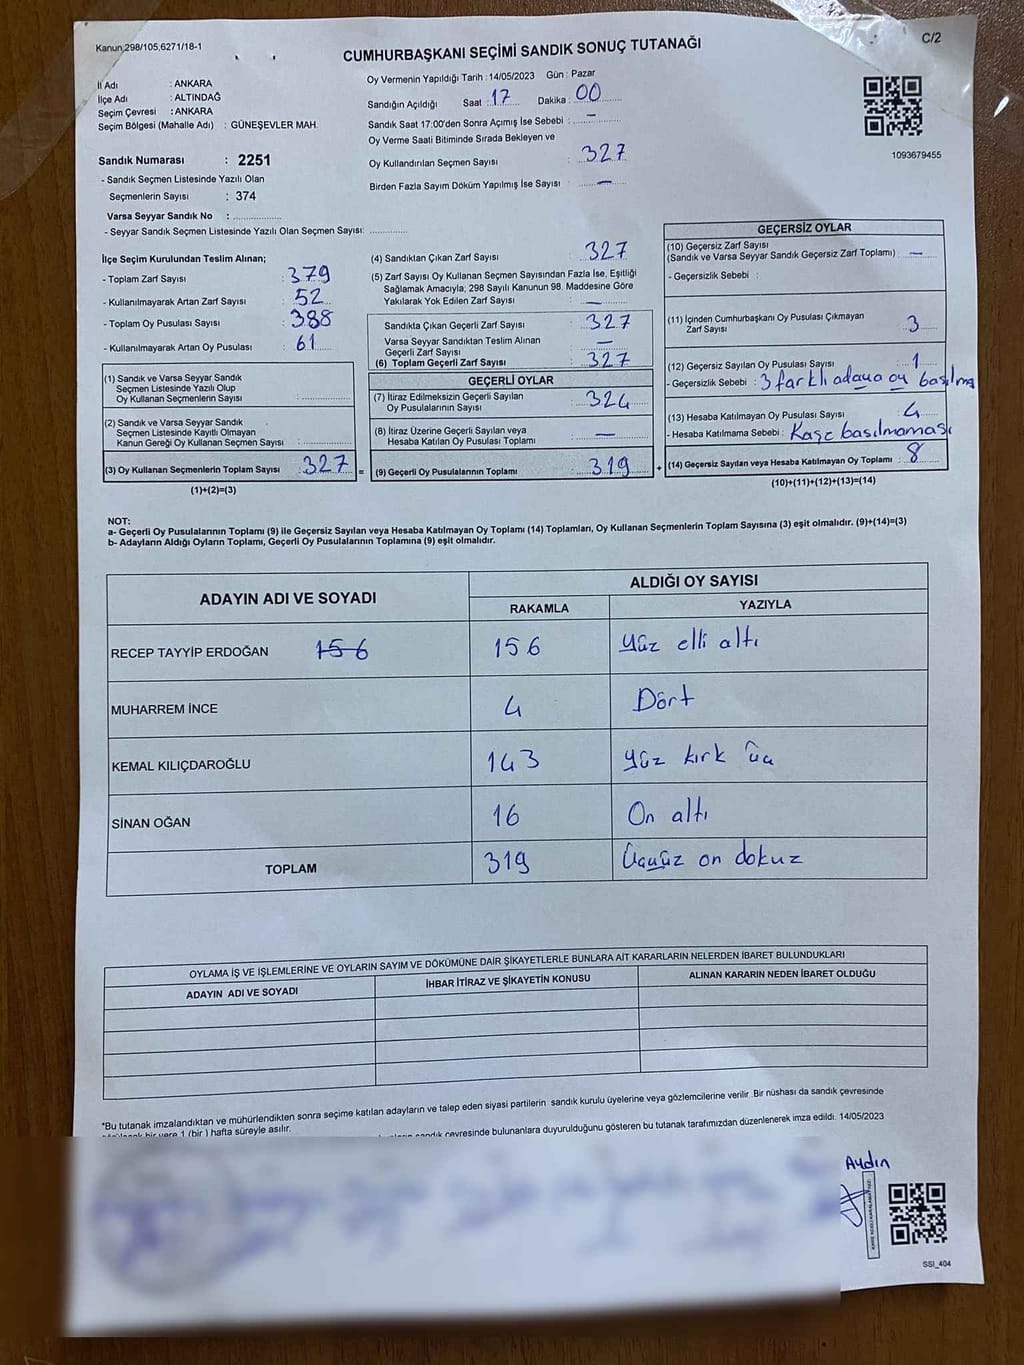 Kanun;298/105;6271/18-1
C/2
CUMHURBAŞKANI SEÇİMİ SANDIK SONUÇ TUTANAĞI
İl Adı : ANKARA
İlçe Adı : ALTINDAĞ
Seçim Çevresi : ANKARA
Seçim Bölgesi (Mahalle Adı) : GÜNEŞEVLER MAH.
Sandık Numarası : 2251
- Sandık Seçmen Listesinde Yazılı Olan
Seçmenlerin Sayısı : 374
Varsa Seyyar Sandık No :
- Seyyar Sandık Seçmen Listesinde Yazılı Olan Seçmen Sayısı:
Oy Vermenin Yapıldığı Tarih : 14/05/2023 Gün : Pazar
Sandığın Açıldığı Saat : 17 Dakika : 00
Sandık Saat 17:00'den Sonra Açımış İse Sebebi : -
Oy Verme Saati Bitiminde Sırada Bekleyen ve
Oy Kullandırılan Seçmen Sayısı : 327
Birden Fazla Sayım Döküm Yapılmış İse Sayısı : -
1093679455
İlçe Seçim Kurulundan Teslim Alınan;
- Toplam Zarf Sayısı : 379
- Kullanılmayarak Artan Zarf Sayısı : 52
- Toplam Oy Pusulası Sayısı : 388
- Kullanılmayarak Artan Oy Pusulası : 61
(1) Sandık ve Varsa Seyyar Sandık
Seçmen Listesinde Yazılı Olup
Oy Kullanan Seçmenlerin Sayısı :
(2) Sandık ve Varsa Seyyar Sandık
Seçmen Listesinde Kayıtlı Olmayan
Kanun Gereği Oy Kullanan Seçmen Sayısı :
(3) Oy Kullanan Seçmenlerin Toplam Sayısı : 327 =
(1)+(2)=(3)
(4) Sandıktan Çıkan Zarf Sayısı : 327
(5) Zarf Sayısı Oy Kullanan Seçmen Sayısından Fazla İse, Eşitliği
Sağlamak Amacıyla; 298 Sayılı Kanunun 98. Maddesine Göre
Yakılarak Yok Edilen Zarf Sayısı : -
Sandıkta Çıkan Geçerli Zarf Sayısı : 327
Varsa Seyyar Sandıktan Teslim Alınan
Geçerli Zarf Sayısı : -
(6) Toplam Geçerli Zarf Sayısı : 327
GEÇERLİ OYLAR
(7) İtiraz Edilmeksizin Geçerli Sayılan
Oy Pusulalarının Sayısı : 324
(8) İtiraz Üzerine Geçerli Sayılan veya
Hesaba Katılan Oy Pusulası Toplamı : -
(9) Geçerli Oy Pusulalarının Toplamı : 319 +
GEÇERSİZ OYLAR
(10) Geçersiz Zarf Sayısı
(Sandık ve Varsa Seyyar Sandık Geçersiz Zarf Toplamı) : -
- Geçersizlik Sebebi :
(11) İçinden Cumhurbaşkanı Oy Pusulası Çıkmayan
Zarf Sayısı : 3
(12) Geçersiz Sayılan Oy Pusulası Sayısı : 1
- Geçersizlik Sebebi : 3 farklı adaya oy basılma
(13) Hesaba Katılmayan Oy Pusulası Sayısı : 4
- Hesaba Katılmama Sebebi : Kaşe basılmaması
(14) Geçersiz Sayılan veya Hesaba Katılmayan Oy Toplamı : 8
(10)+(11)+(12)+(13)=(14)
NOT:
a- Geçerli Oy Pusulalarının Toplamı (9) ile Geçersiz Sayılan veya Hesaba Katılmayan Oy Toplamı (14) Toplamları, Oy Kullanan Seçmenlerin Toplam Sayısına (3) eşit olmalıdır. (9)+(14)=(3)
b- Adayların Aldığı Oyların Toplamı, Geçerli Oy Pusulalarının Toplamına (9) eşit olmalıdır.
ADAYIN ADI VE SOYADI
ALDIĞI OY SAYISI
RAKAMLA YAZIYLA
RECEP TAYYİP ERDOĞAN 156 156 Yüz elli altı
MUHARREM İNCE 4 Dört
KEMAL KILIÇDAROĞLU 143 Yüz kırk üç
SİNAN OĞAN 16 On altı
TOPLAM 319 Üçyüz on dokuz
OYLAMA İŞ VE İŞLEMLERİNE VE OYLARIN SAYIM VE DÖKÜMÜNE DAİR ŞİKAYETLERLE BUNLARA AİT KARARLARIN NELERDEN İBARET BULUNDUKLARI
ADAYIN ADI VE SOYADI İHBAR İTİRAZ VE ŞİKAYETİN KONUSU ALINAN KARARIN NEDEN İBARET OLDUĞU
*Bu tutanak imzalandıktan ve mühürlendikten sonra seçime katılan adayların ve talep eden siyasi partilerin sandık kurulu üyelerine veya gözlemcilerine verilir. Bir nüshası da sandık çevresinde
bir yere 1 (bir ) hafta süreyle asılır.
sandık çevresinde bulunanlara duyurulduğunu gösteren bu tutanak tarafımızdan düzenlenerek imza edildi. 14/05/2023
Aydın
SSI_404